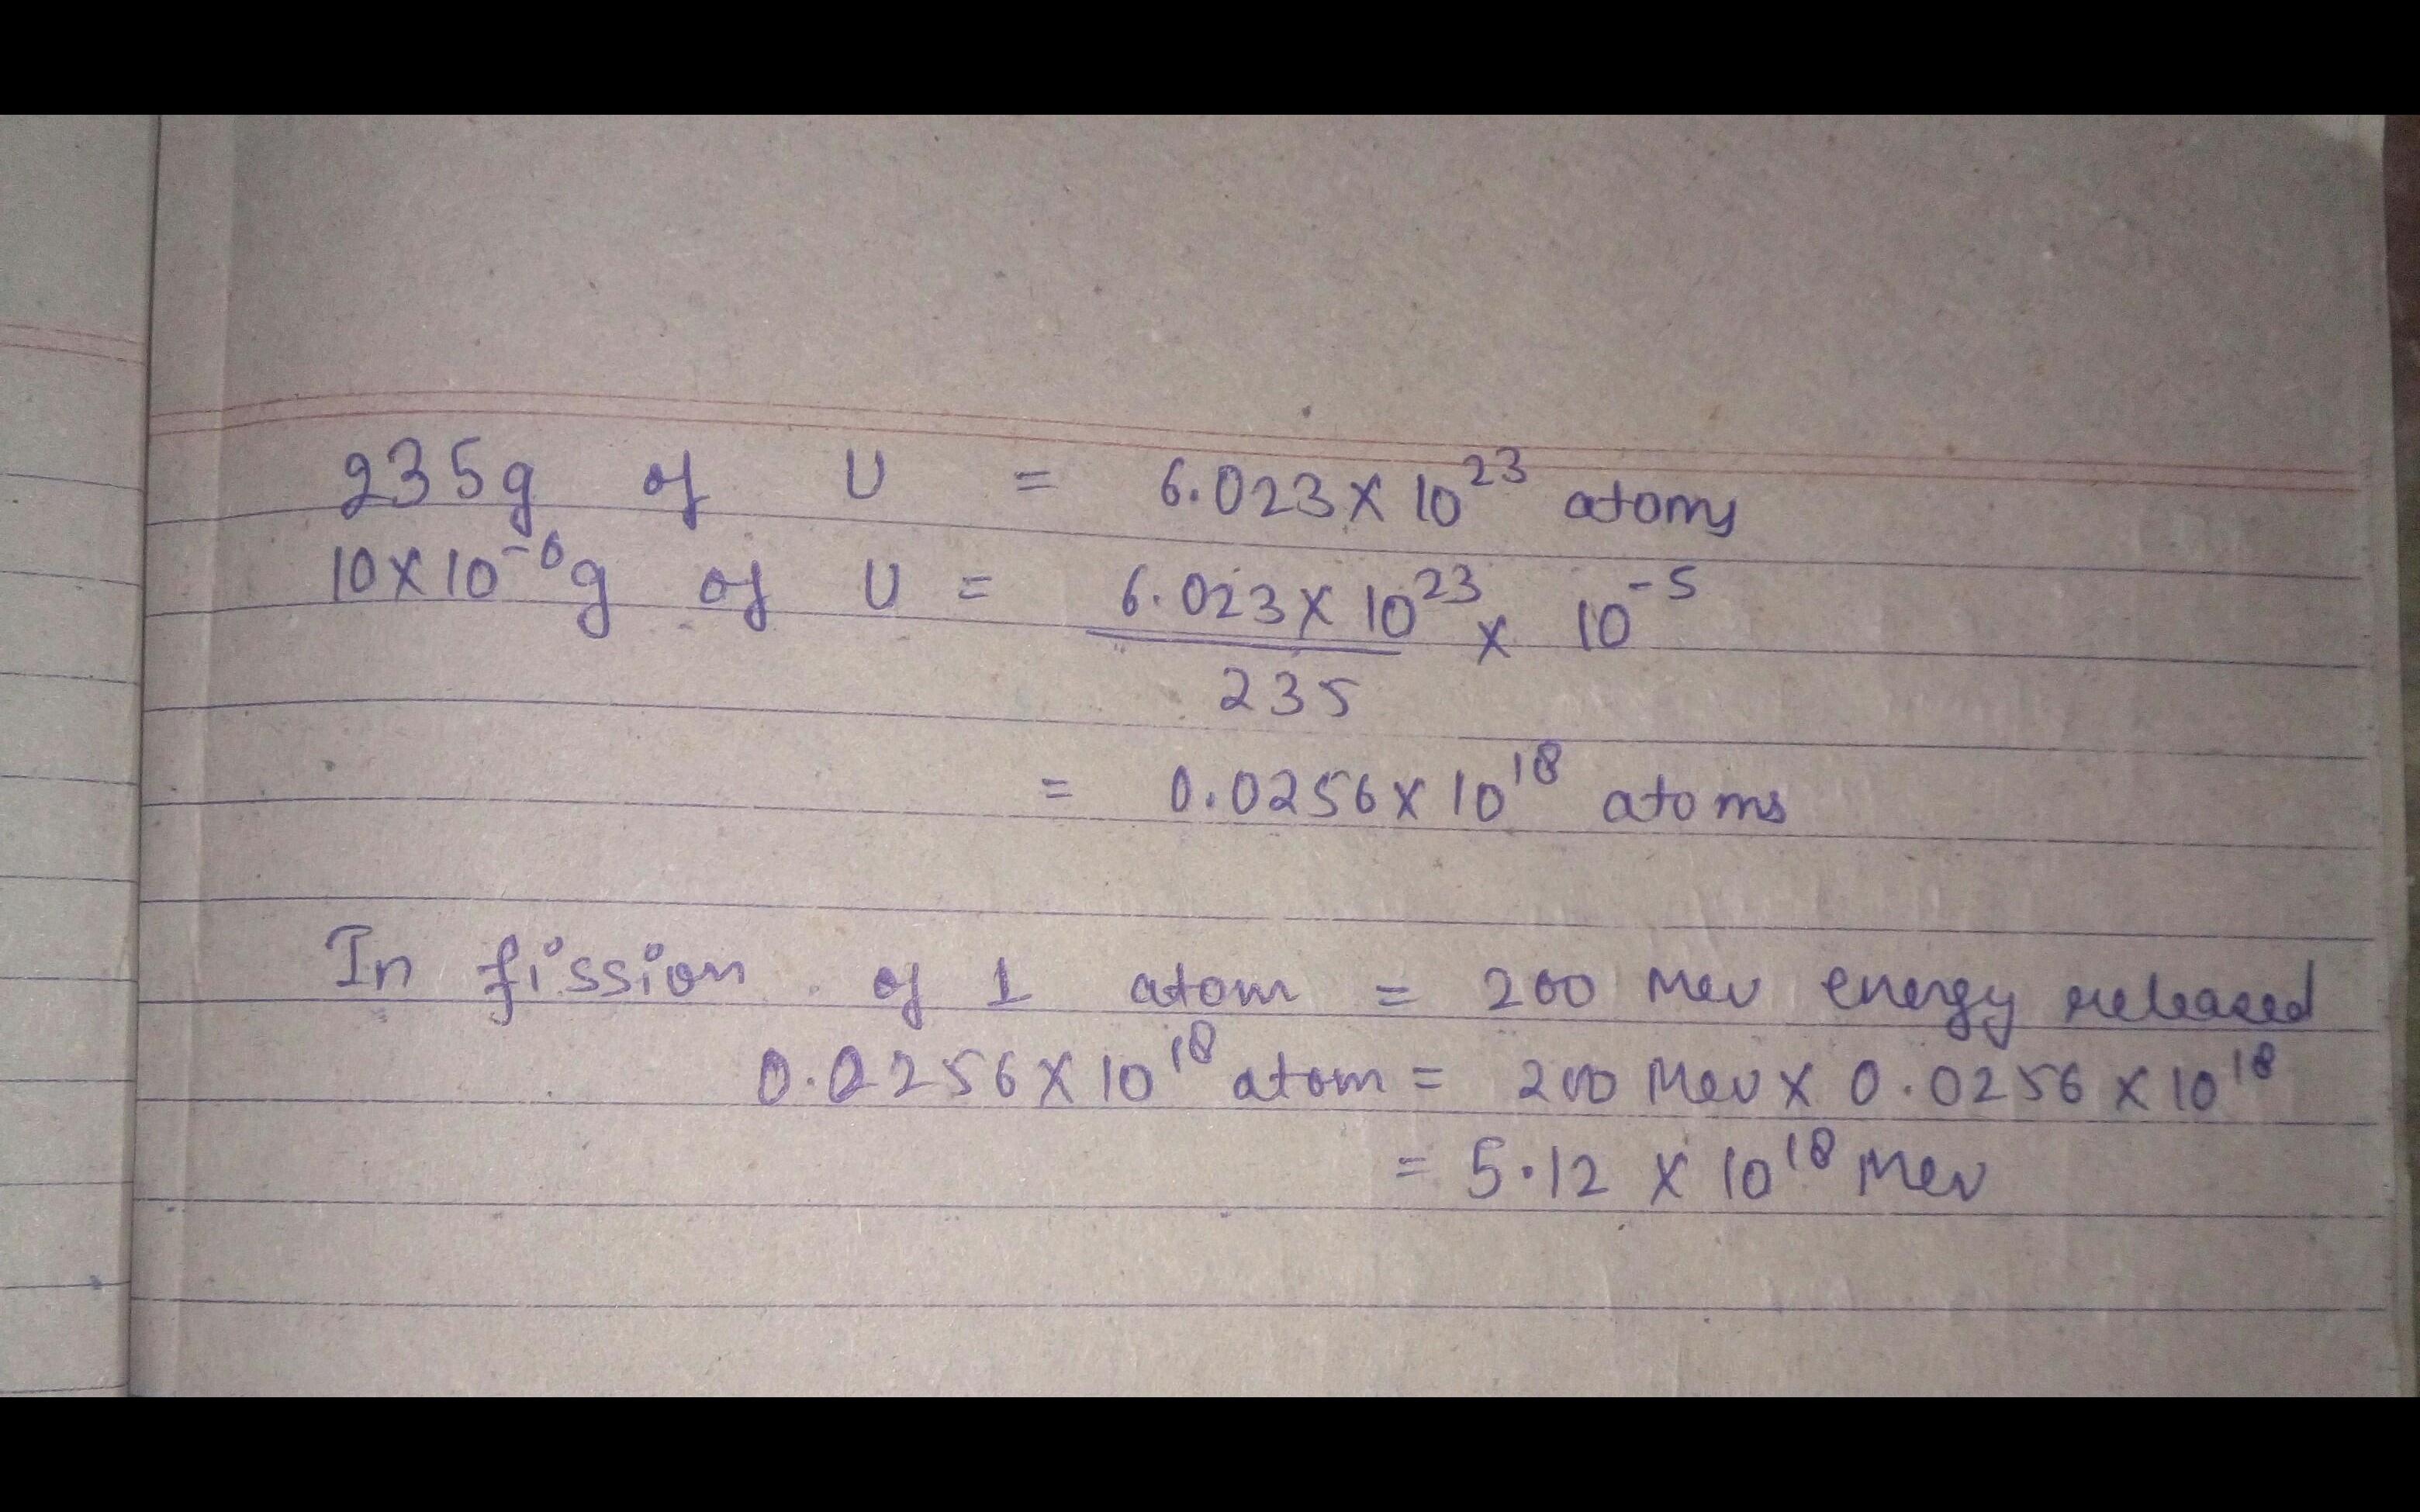 235g of U = 6.023 × 10²³ atoms
10×10⁻⁶g of U = 6.023 × 10²³ × 10⁻⁵
235
= 0.0256 × 10¹⁸ atoms
In fission of 1 atom = 200 Mev energy released
0.0256 × 10¹⁸ atom = 200 Mev × 0.0256 × 10¹⁸
= 5.12 × 10¹⁸ Mev